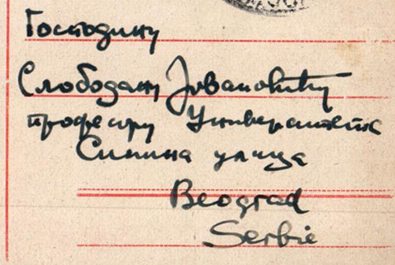 Господину
Слободану Јовановићу
професору Универзитета
Симина улица
Beograd
Serbie